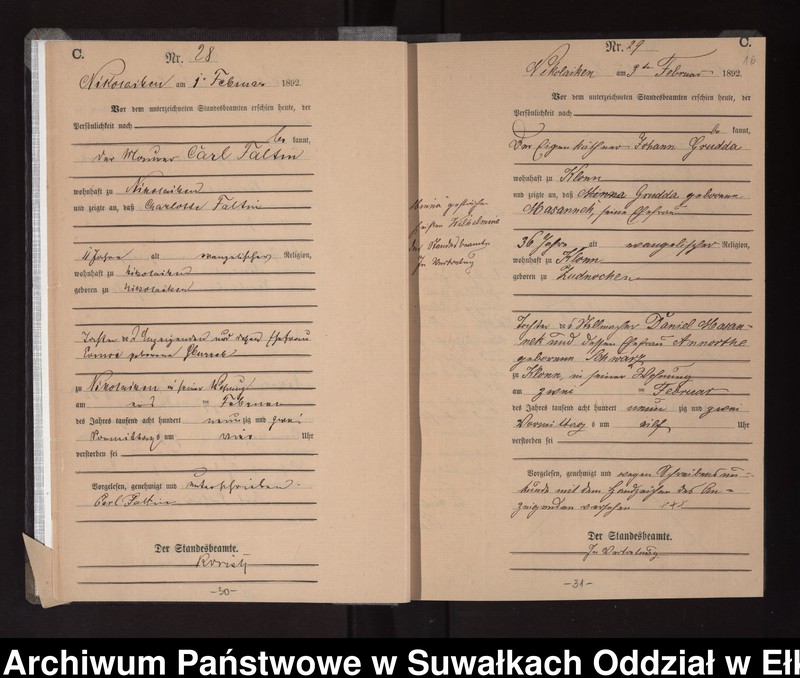 C.
Nr. 28
Nikolaiken am 1ten Februar 1892.
Vor dem unterzeichneten Standesbeamten erschien heute, der
Persönlichkeit nach
be kannt,
der Maurer Carl Faltin
wohnhaft zu Nikolaiken
und zeigte an, daß Charlotte Faltin
alt evangelischer Religion,
wohnhaft zu Nikolaiken
geboren zu Nikolaiken
Tochter des Anzeigenden und dessen Ehefrau
geborene
zu Nikolaiken in seiner Wohnung
am ersten Februar
des Jahres tausend acht hundert neun zig und zwei
Vormittags um vier Uhr
verstorben sei
Vorgelesen, genehmigt und unterschrieben.
Carl Faltin
Der Standesbeamte.
-30-
Nr. 29
C.
16
Nikolaiken am 3ten Februar 1892.
Vor dem unterzeichneten Standesbeamten erschien heute, der
Persönlichkeit nach
be kannt,
Der Eigenkäthner Johann Grudda
wohnhaft zu Klonn
und zeigte an, daß Henna Grudda geborene
Masannek, seine Ehefrau
36 Jahre alt evangelischer Religion,
wohnhaft zu Klonn
geboren zu Zudnochen
Tochter des Stellmacher Daniel Masan-
nek und dessen Ehefrau Annorthe
geborenen Schwarz
zu Klonn, in seiner Wohnung
am zwei Februar
des Jahres tausend acht hundert neun zig und zwei
Vormittag s um elf Uhr
verstorben sei
Vorgelesen, genehmigt und wegen Schreibensun-
kunde mit dem Handzeichen des An-
zeigenden versehen +++
Der Standesbeamte.
In Vertretung
-31-
gestrichen
heißen Wilhelmine
der Standesbeamte
In Vertretung
Archiwum Państwowe w Suwałkach Oddział w Ełk